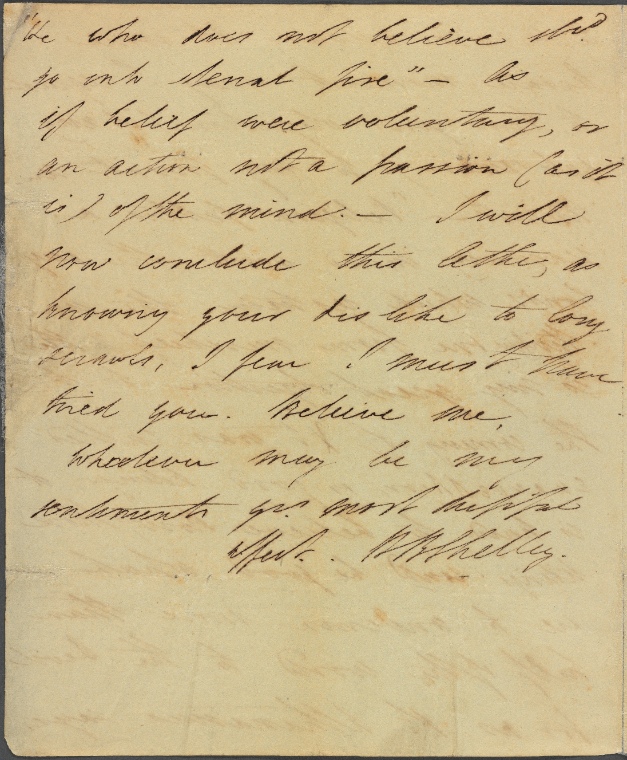 "He who does not believe shd.
go into eternal fire" — As
if belief were voluntary, or
an action not a passion (as it
is) of the mind. — I will
now conclude this letter, as
knowing your dislike to long
scrawls, I fear I must have
tired you. Believe me,
Whatever may be my
sentiments yr. most dutiful
affect. PBShelley.